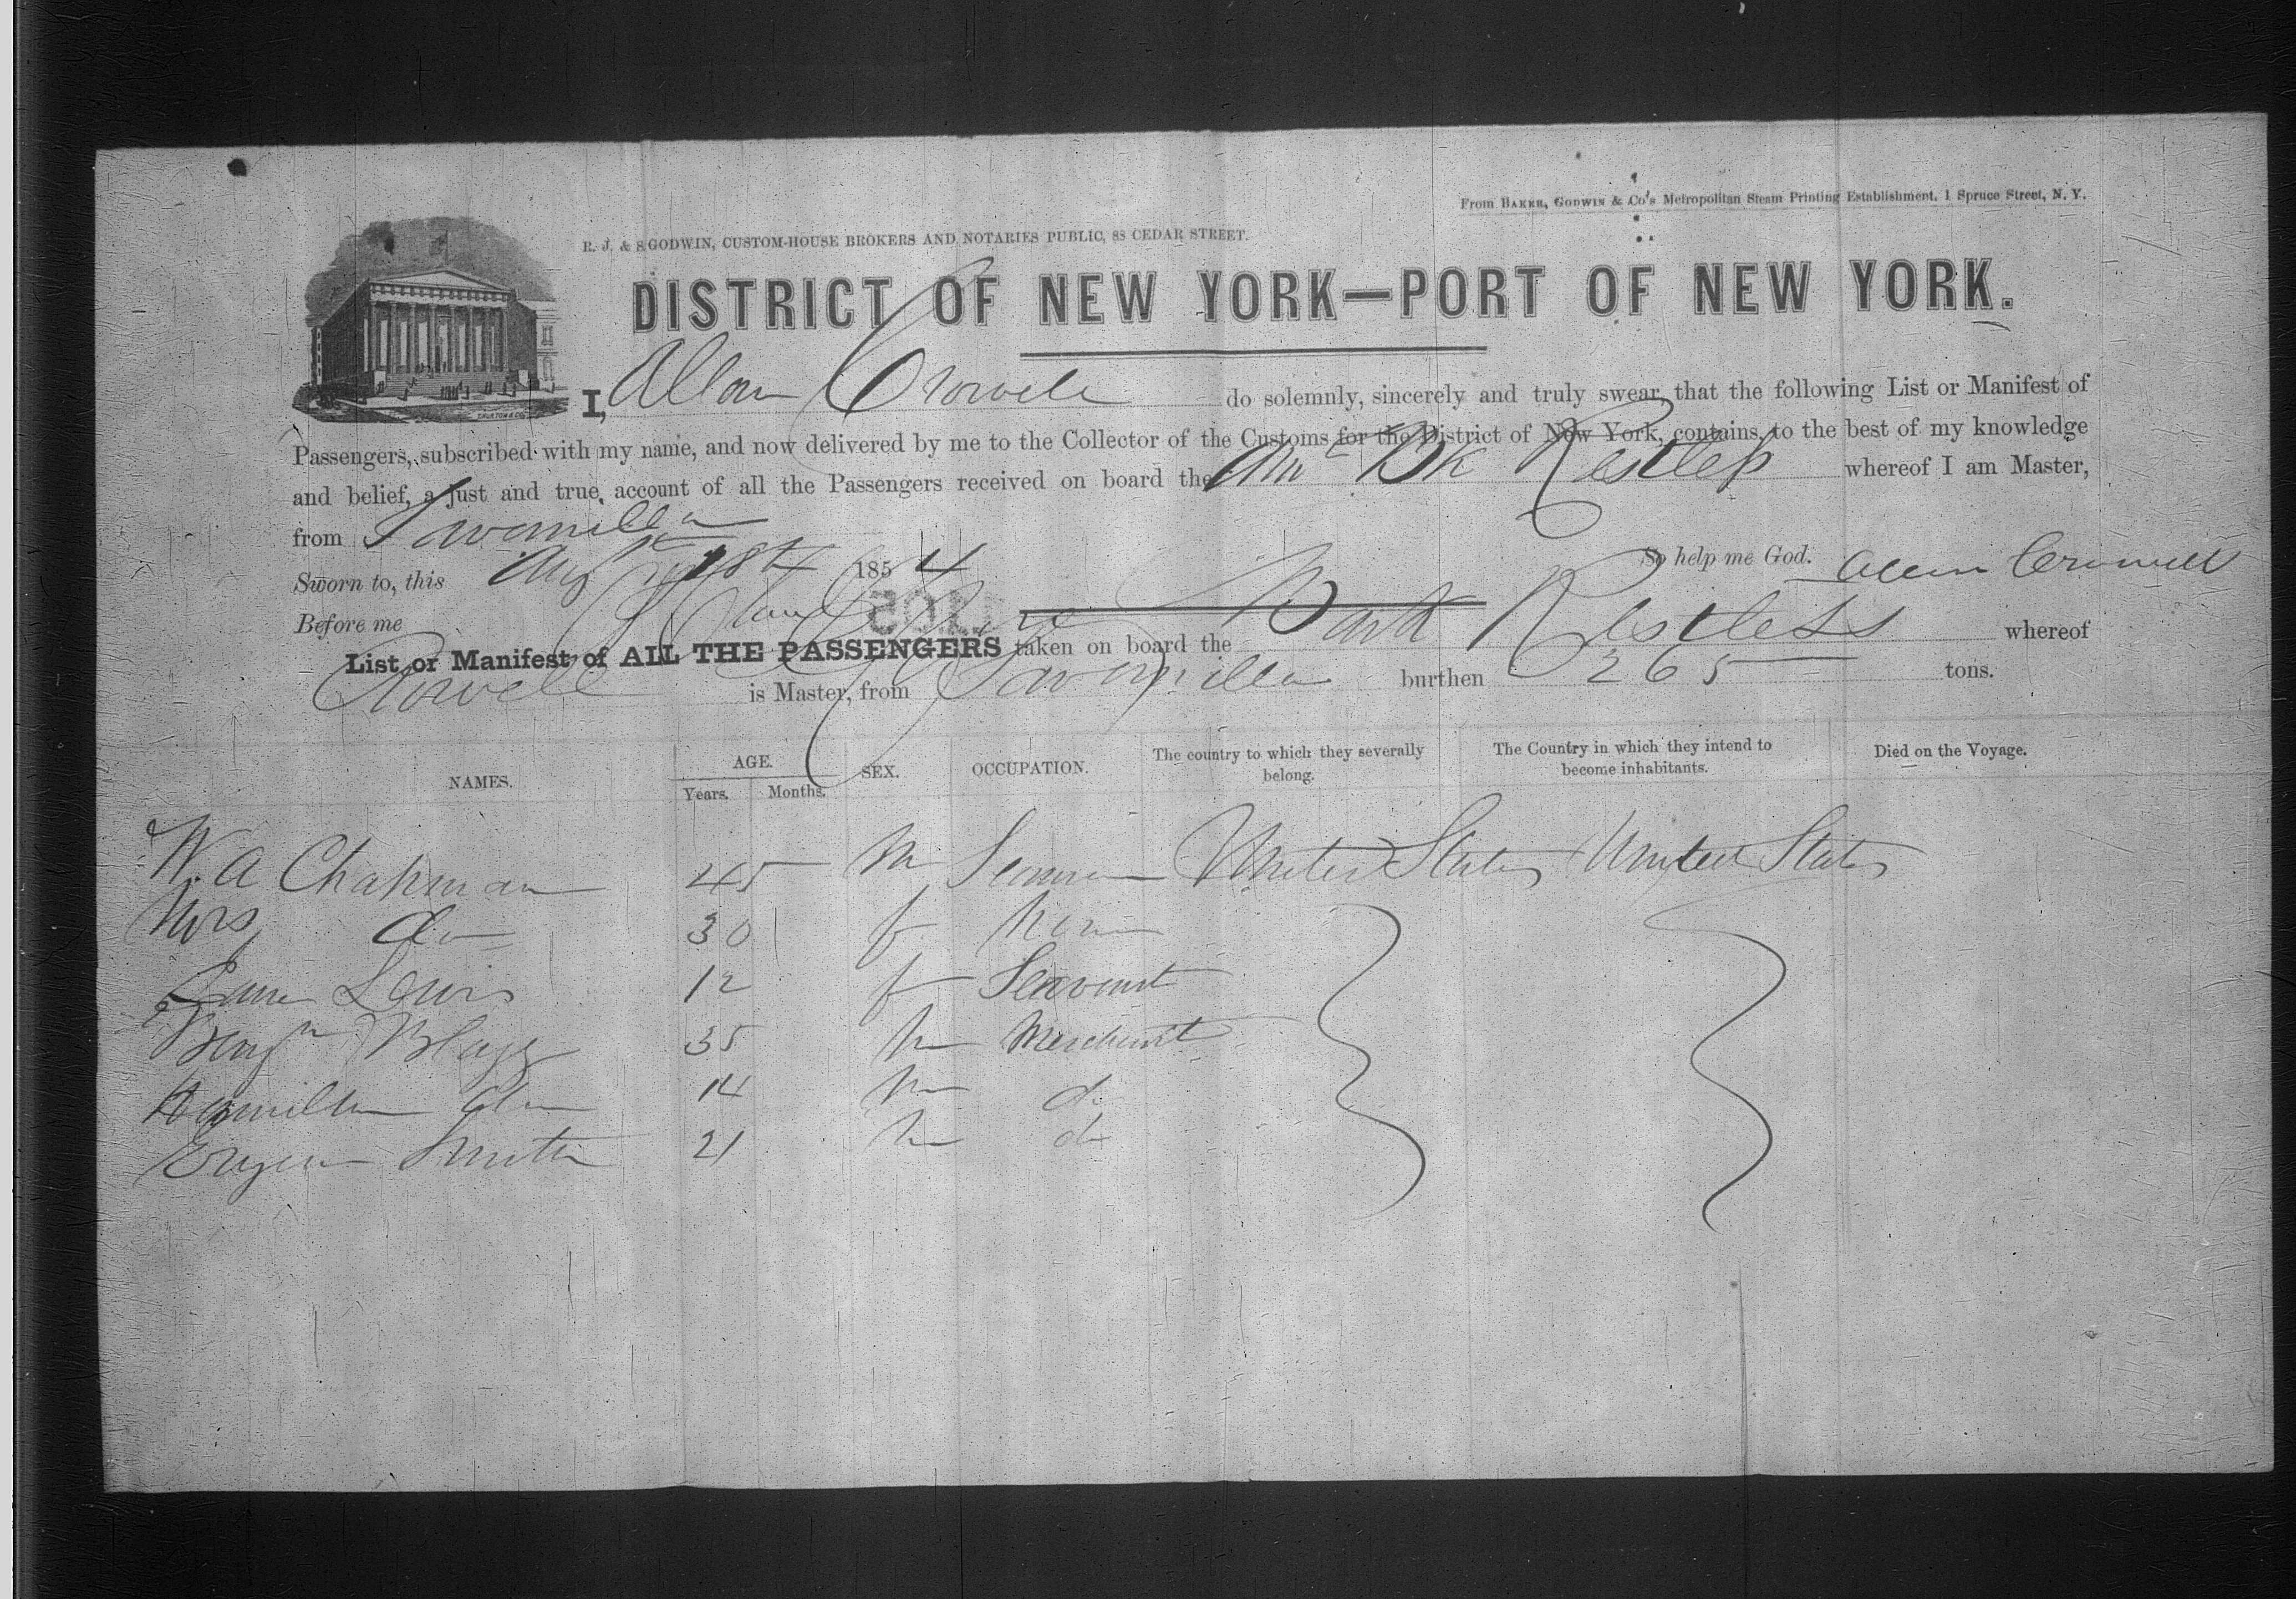 From BAKER, GODWIN & Co's Metropolitan Steam Printing Establishment, 1 Spruce Street, N. Y.
R. J. & S GODWIN, CUSTOM-HOUSE BROKERS AND NOTARIES PUBLIC, 88 CEDAR STREET.
DISTRICT OF NEW YORK—PORT OF NEW YORK.
I, Allan Crowell do solemnly, sincerely and truly swear, that the following List or Manifest of
Passengers, subscribed with my name, and now delivered by me to the Collector of the Customs for the District of New York, contains, to the best of my knowledge
and belief, a just and true account of all the Passengers received on board the Amc Bk Restless whereof I am Master,
from Savanilla
So help me God. Allen Crowell
Sworn to, this Aug 18th 1854
Before me
List or Manifest of ALL THE PASSENGERS taken on board the Bark Restless whereof
Crowell is Master, from Savanilla burthen 265 tons.
NAMES. AGE. Years. Months. SEX. OCCUPATION. The country to which they severally belong. The Country in which they intend to become inhabitants. Died on the Voyage.
W. A Chapman 45 M Seaman United States United States
Mrs do 30 f None
Lewis 12 f Servant
Benjn 35 M Merchant
Hamilton do 14 M do
Eugene Smith 21 M do